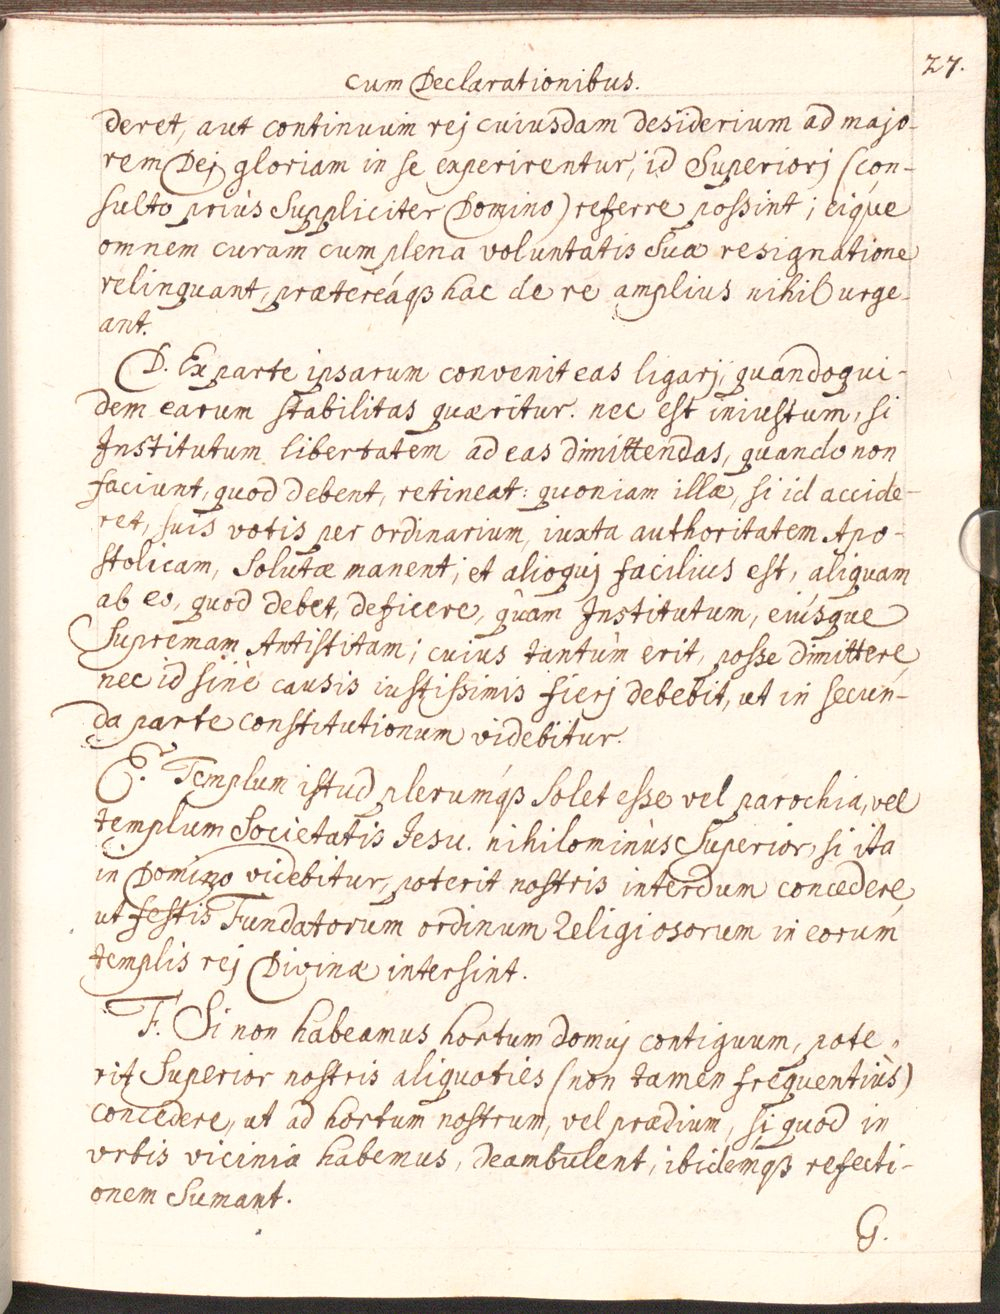 27.
cum Declarationibus.
deret, aut continuum rej cuiusdam desiderium ad majo-
rem Dej gloriam in se experirentur, id Superiorj (con-
sulto priùs suppliciter Domino) referre possint; eique
omnem curam cum plena voluntatis suæ resignatione
relinquant, prætereáqß hac de re amplius nihil urge-
ant.
D. Ex parte ipsarum convenit eas ligarj, quandoqui-
dem earum stabilitas quæritur. nec est iniustum, si
Institutum libertatem ad eas dimittendas, quando non
faciunt, quod debent, retineat: quoniam illæ, si id accide-
ret, suis votis per ordinarium, iuxta authoritatem Apo-
stolicam, solutæ manent; et alioquj facilius est, aliquam
ab eo, quod debet, deficere, quàm Institutum, eiúsque
Supremam Antistitam; cuius tantùm erit, posse dimittere,
nec id sinè causis iustissimis fierj debebit, ut in secun-
da parte constitutionum videbitur.
E. Templum istud plerumqß solet esse vel parochia, vel
templum Societatis Jesu. nihilominùs Superior, si ita
in Domino videbitur, poterit nostris interdum concedere,
ut festis Fundatorum ordinum Religiosorum in eorum
templis rej Divinæ intersint.
F. Si non habeamus hortum domuj contiguum, pote-
rit Superior nostris aliquoties (non tamen frequentiùs)
concedere, ut ad hortum nostrum, vel prædium, si quod in
urbis vicinia habemus, deambulent, ibidemqß refecti-
onem sumant.
G.